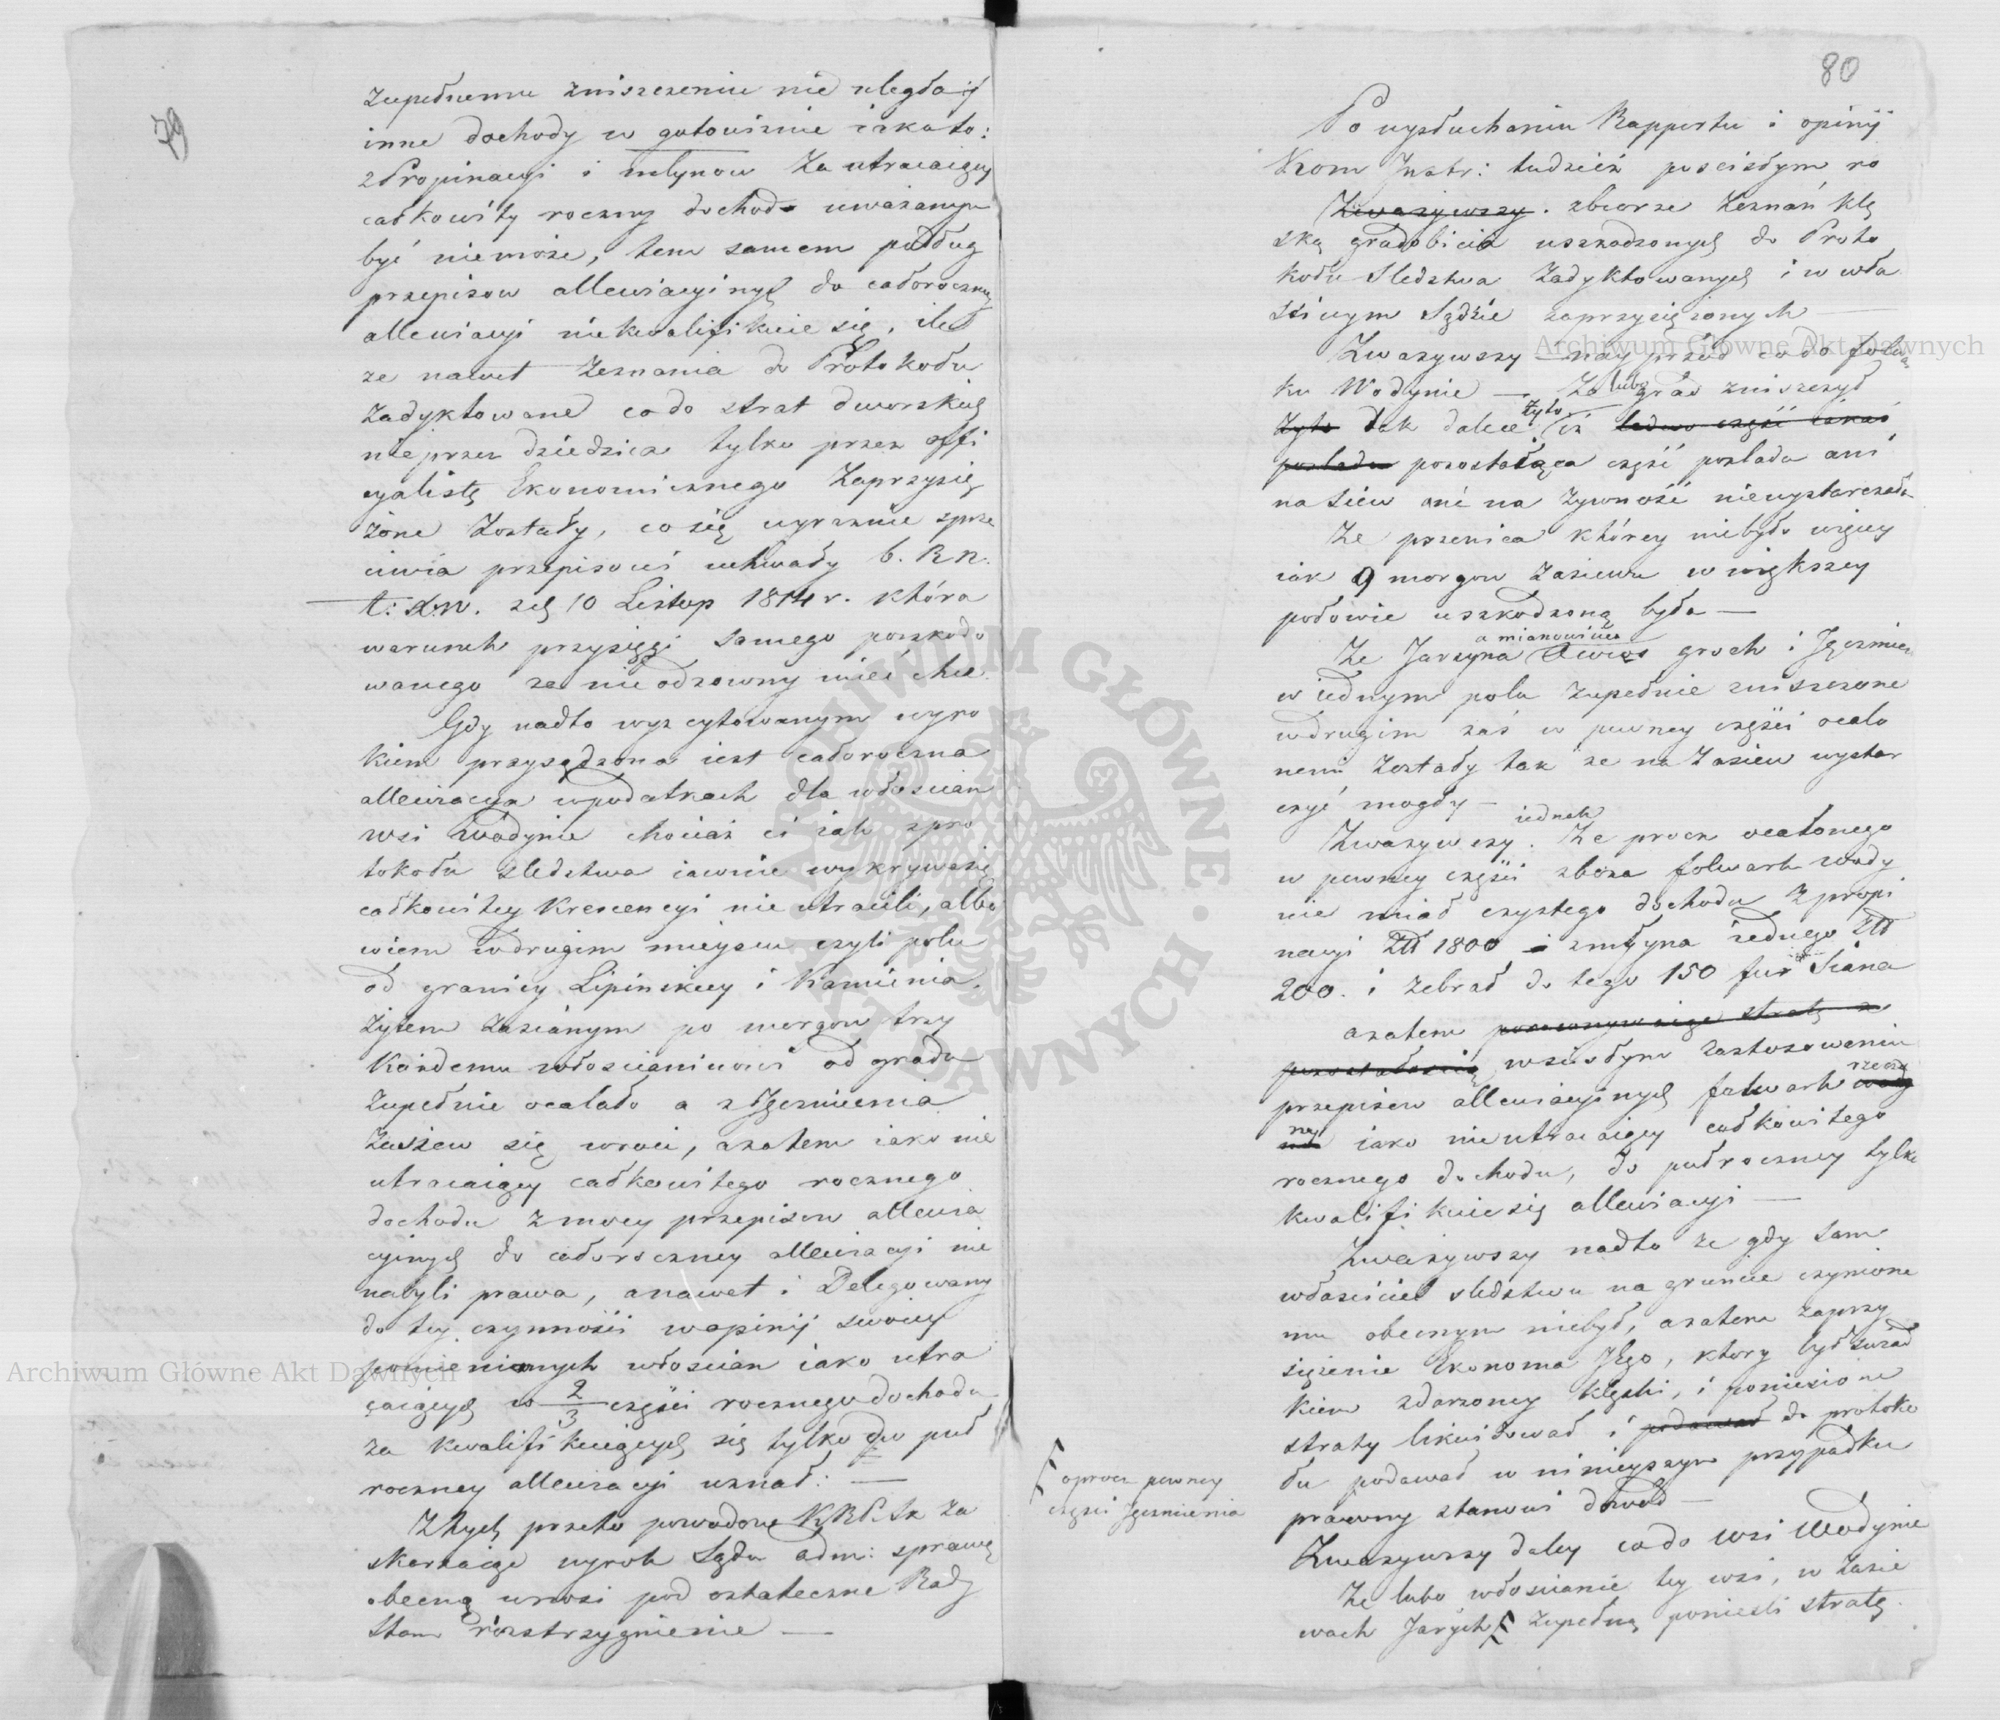 79
zupełnemu zniszczeniu nie uległa i
inne dochody w gotowiznie iakoto:
z Propinacyi i młynow za utracaiący
całkowity roczny dochod uważanym
być niemoże, tem samem podług
przepisow allewiacyinych do całoroczney
allewiacyi niekwalifikuie się, ile
że nawet zeznania do Protokołu
zadyktowane co do strat dworskich
nieprzez dziedzica tylko przez offi
cyalistę Ekonomicznego zaprzysię
żone zostały, co się wyraznie sprze
ciwia przepisowi uchwały b. R. N.
t: X. W. z d. 10 Listop 1814 r. która
warunek przysięgi samego poszkodo
wanego za nieodzowny mieć chce.
Gdy nadto wyż cytowanym wyro
kiem przysądzona iest całoroczna
allewiacya w podatkach dla włoscian
wsi Wodynie chociaż ci iak z pro
tokołu sledztwa iawnie wykrywa się
całkowitey Krescencyi nie utracili, albo
wiem w drugim mieyscu czyli polu
od granicy Lipinskiey i Kamienia
żytem zasianym po morgow trzy
Każdemu włoscianinowi od gradu
zupełnie ocalało a z Jęczmienia
Zasiew się wroci, azatem iako nie
utracaiący całkowitego rocznego
dochodu z mocy przepisow allewia
cyinych do całoroczney allewiacyi nie
nabyli prawa, a nawet i Delegowany
do tey czynności w opinij swoiey
pomienionych włoscian iako utra
caiących w 2/3 części rocznego dochodu
za kwalifikuiących się tylko do puł
roczney allewiacyi uznał: —
Z tych przeto powodow K. R. P. i Sk za
skarżaiąc wyrok Sądu adm: sprawę
obecną wnosi pod ostateczne Rady
Stanu rozstrzygnienie —
80
Po wysłuchaniu Rapportu i opinij
Kom Instr: tudzież po scisłym ro
Zważywszy. zbiorze zeznań klę
ską gradobicia uszkodzonych do Proto
kołu Sledztwa zadyktowanych i w wła
sciwym Sądzie zaprzysiężonych —
Zważywszy — nayprzód co do folwar
ku Wodynie — Że lubo grad zniszczył
żyto tak dalece żyto iż ledwo część iakaś
pozostała pozostałąca część poslada ani
na siew ani na żywność niewystarczała
Że pszenica którey niebyło więcey
iak 9 morgow zasiewu w większey
połowie uszkodzoną była —
Że Jarzyna a mianowicie Owies groch i Jęczmień
w iednym polu zupełnie zniszczone
w drugim zaś w pewney części ocalo
nemi zostały tak że na zasiew wystar
czyć mogły —
Zważywszy iednak. Że procz ocalonego
w pewney części zboża folwark Wody
nie miał czystego dochodu z propi
nacyi Zł 1800 i z młyna iednego Zł
200. i zebrał do tego 150 fur Siana
azatem porownywaiąc stratę z
pozostałością w scisłym zastosowaniu
przepisow allewiacyinych folwark rzeczo
ny iako nieutracaiący całkowitego
rocznego dochodu, do pułroczney tylko
kwalifikuie się allewiacyi —
Zważywszy nadto że gdy sam
właściciel sledztwu na gruncie czynione
mu obecnym niebył, azatem zaprzy
siężenie Ekonoma Jego, ktory był świad
kiem zdarzoney klęski, i poniesione
straty likwidował i podawał do protoko
łu podawał w ninieyszym przypadku
prawny stanowi dowod —
Zważywszy daley co do wsi Wodynie
Że lubo włoscianie tey wsi, w zasie
wach Jarych F zupełną poniesli stratę.
F oprocz pewney
części Jęczmienia
Archiwum Główne Akt Dawnych
Archiwum Główne Akt Dawnych
ARCHIWUM GŁÓWNE AKT DAWNYCH